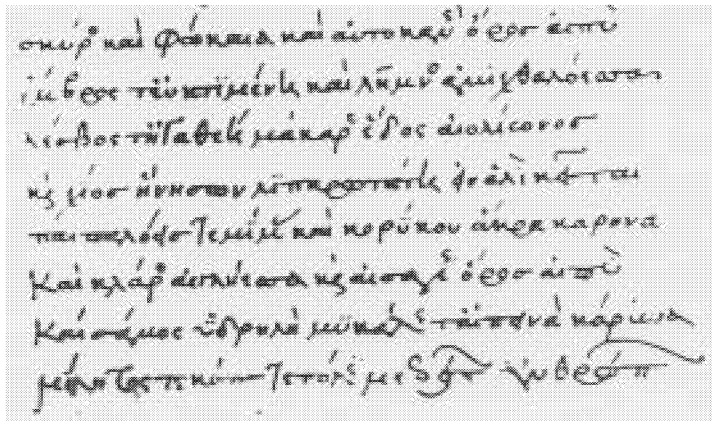 σκύρος καὶ φώκαια καὶ αὐτοκάνης ὄρος αἰπὺ
ἴμβρος τ' εὐκτιμένη καὶ λῆμνος ἀμιχθαλόεσσα
λέσβος τ' ἠγαθέη μάκαρος ἕδος αἰολίωνος
καὶ χίος ἣ νήσων λιπαρωτάτη εἰν ἁλὶ κεῖται
παιπαλόεσ τε μίμας καὶ κορύκου ἄκρα κάρηνα
καὶ κλάρος αἰγλήεσσα καὶ αἰσαγέης ὄρος αἰπὺ
καὶ σάμος ὑδρηλὴ μυκάλης τ' αἰπεινὰ κάρηνα
μίλητος τε κόως τε πόλις μερόπων